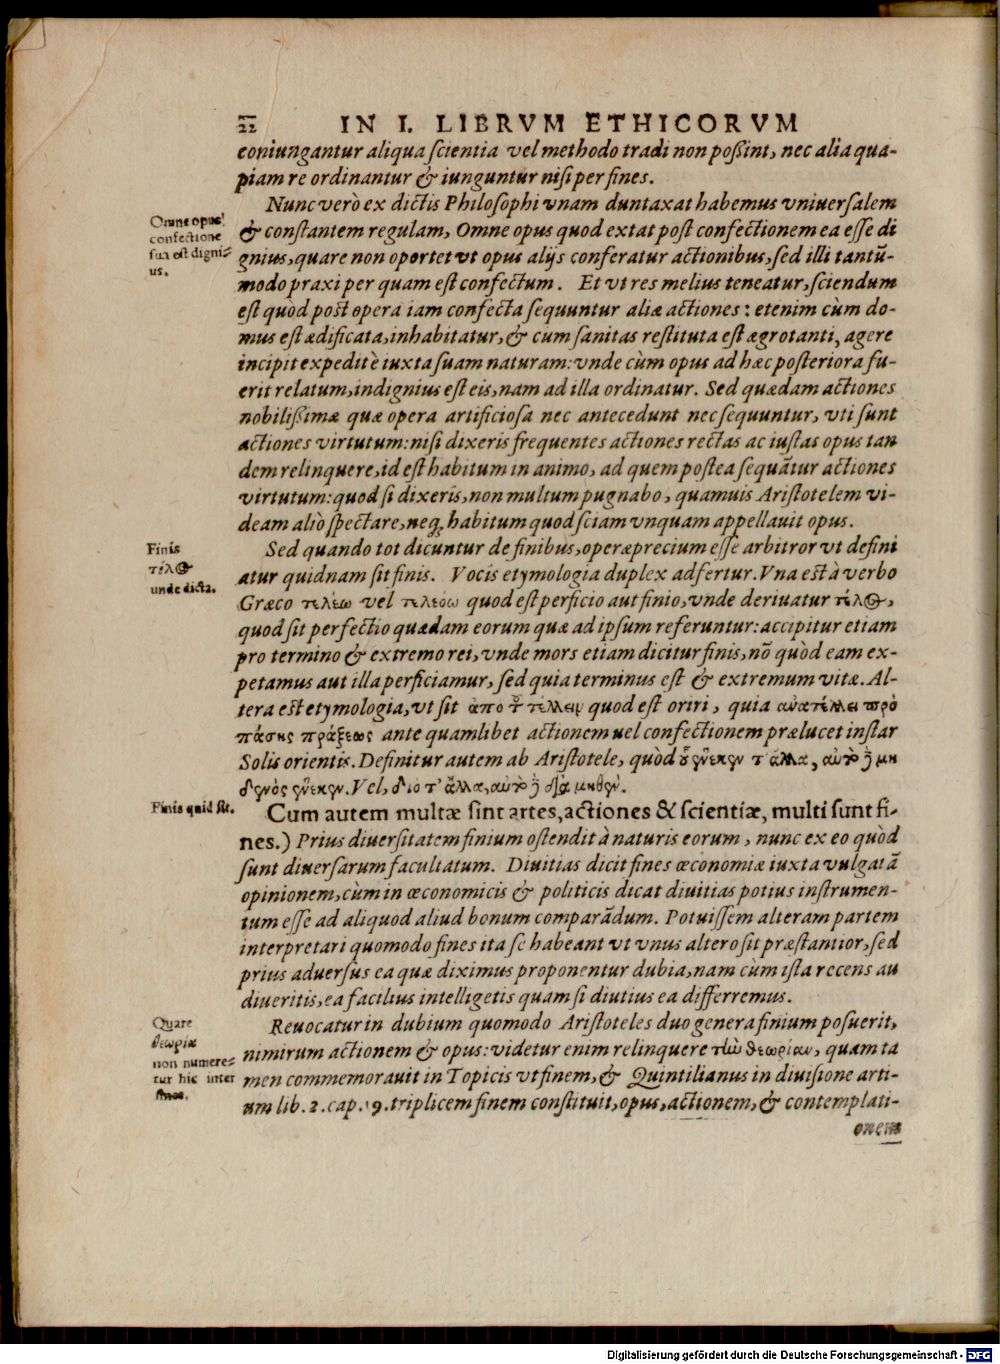 22 IN I. LIBRVM ETHICORVM
coniungantur aliqua scientia vel methodo tradi non poßint, nec alia qua-
piam re ordinantur & iunguntur nisi per fines.
Nunc verò ex dictis Philosophi vnam duntaxat habemus vniuersalem
Omne opus
confectione
sua est digni-
us.
& constantem regulam, Omne opus quod extat post confectionem ea esse di
gnius, quare non oportet vt opus alijs conferatur actionibus, sed illi tantũ-
modo praxi per quam est confectum. Et vt res melius teneatur, sciendum
est quòd post opera iam confecta sequuntur aliæ actiones: etenim cùm do-
mus est ædificata, inhabitatur, & cum sanitas restituta est ægrotanti, agere
incipit expeditè iuxta suam naturam: vnde cùm opus ad hæc posteriora fu-
erit relatum, indignius est eis, nam ad illa ordinatur. Sed quædam actiones
nobilißimæ quæ opera artificiosa nec antecedunt nec sequuntur, vti sunt
actiones virtutum: nisi dixeris frequentes actiones rectas ac iustas opus tan
dem relinquere, id est habitum in animo, ad quem postea sequãtur actiones
virtutum: quod si dixeris, non multum pugnabo, quamuis Aristotelem vi-
deam aliò spectare, neq; habitum quod sciam vnquam appellauit opus.
Finis
τέλος
unde dicta.
Sed quando tot dicuntur de finibus, operæprecium esse arbitror vt defini
atur quidnam sit finis. Vocis etymologia duplex adfertur. Vna est à verbo
Græco τελέω vel τελεόω quod est perficio aut finio, vnde deriuatur τέλος,
quod sit perfectio quædam eorum quæ ad ipsum referuntur: accipitur etiam
pro termino & extremo rei, vnde mors etiam dicitur finis, nõ quòd eam ex-
petamus aut illa perficiamur, sed quia terminus est & extremum vitæ. Al-
tera est etymologia, vt sit ἀπὸ τοῦ τέλλειν quod est oriri, quia ἀνατέλλει πρὸ
πάσης πράξεως ante quamlibet actionem uel confectionem prælucet instar
Solis orientis. Definitur autem ab Aristotele, quòd οὗ ἕνεκεν τ' ἄλλα, αὐτὸ δὲ μη
δενὸς ἕνεκεν. Vel, διὸ τ' ἄλλα, αὐτὸ δὲ διὰ μηθέν.
Finis quid sit.
Cum autem multæ sint artes, actiones & scientiæ, multi sunt fi-
nes.) Prius diuersitatem finium ostendit à naturis eorum, nunc ex eo quòd
sunt diuersarum facultatum. Diuitias dicit fines œconomiæ iuxta vulgatã
opinionem, cùm in œconomicis & politicis dicat diuitias potius instrumen-
tum esse ad aliquod aliud bonum comparãdum. Potuissem alteram partem
interpretari quomodo fines ita se habeant vt vnus altero sit præstantior, sed
prius aduersus ea quæ diximus proponentur dubia, nam cùm ista recens au
diueritis, ea facilius intelligetis quam si diutius ea differremus.
Quare
θεωρίæ
non numere-
tur hic inter
fines.
Reuocatur in dubium quomodo Aristoteles duo genera finium posuerit,
nimirum actionem & opus: videtur enim relinquere τὴν θεωρίαν, quam ta
men commemorauit in Topicis vt finem, & Quintilianus in diuisione arti-
um lib. 2. cap. 19. triplicem finem constituit, opus, actionem, & contemplati-
onem
Digitalisierung gefördert durch die Deutsche Forschungsgemeinschaft - DFG